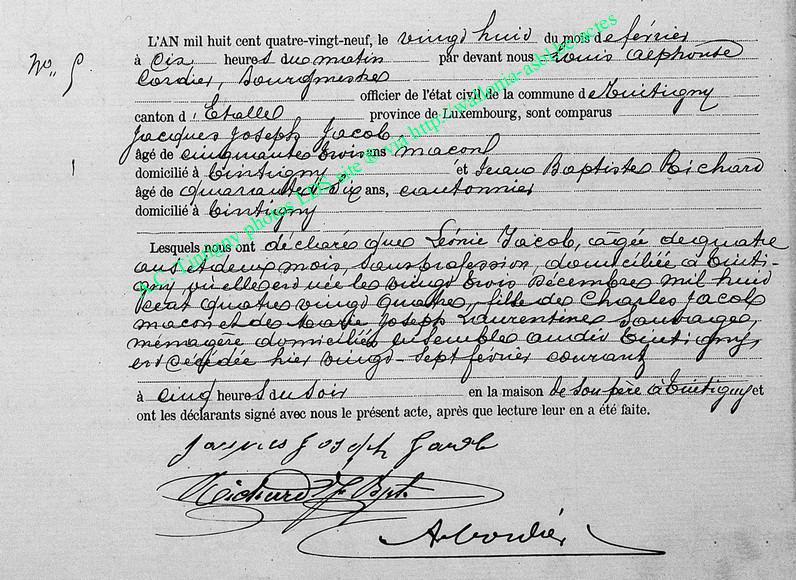 N° 5
L'AN mil huit cent quatre-vingt-neuf, le vingt huit du mois de février
à dix heures du matin par devant nous Louis Alphonse
Cordier, Bourgmestre
officier de l'état civil de la commune de Tintigny
canton d'Etalle province de Luxembourg, sont comparus
Jacques Joseph Jacob
âgé de cinquante trois ans maçon
domicilié à Tintigny et Jean Baptiste Richard
âgé de quarante six ans, cantonnier
domicilié à Tintigny
Lesquels nous ont déclaré que Léonie Jacob, âgée de quatre
ans et deux mois, sans profession, domiciliée à Tinti-
gny où elle est née le vingt trois décembre mil huit
cent quatre vingt quatre, fille de Charles Jacob
maçon et de Marie Joseph Laurentine Sauvage,
ménagère domiciliés ensemble audit Tintigny,
est décédée hier vingt-sept février courant
à cinq heures du soir en la maison de son père à Tintigny et
ont les déclarants signé avec nous le présent acte, après que lecture leur en a été faite.
Jacques Joseph Jacob
Richard J Bpte
A. Cordier
A.C. Tintigny photos LDS site © via http://wallonia-asbl.be/actes